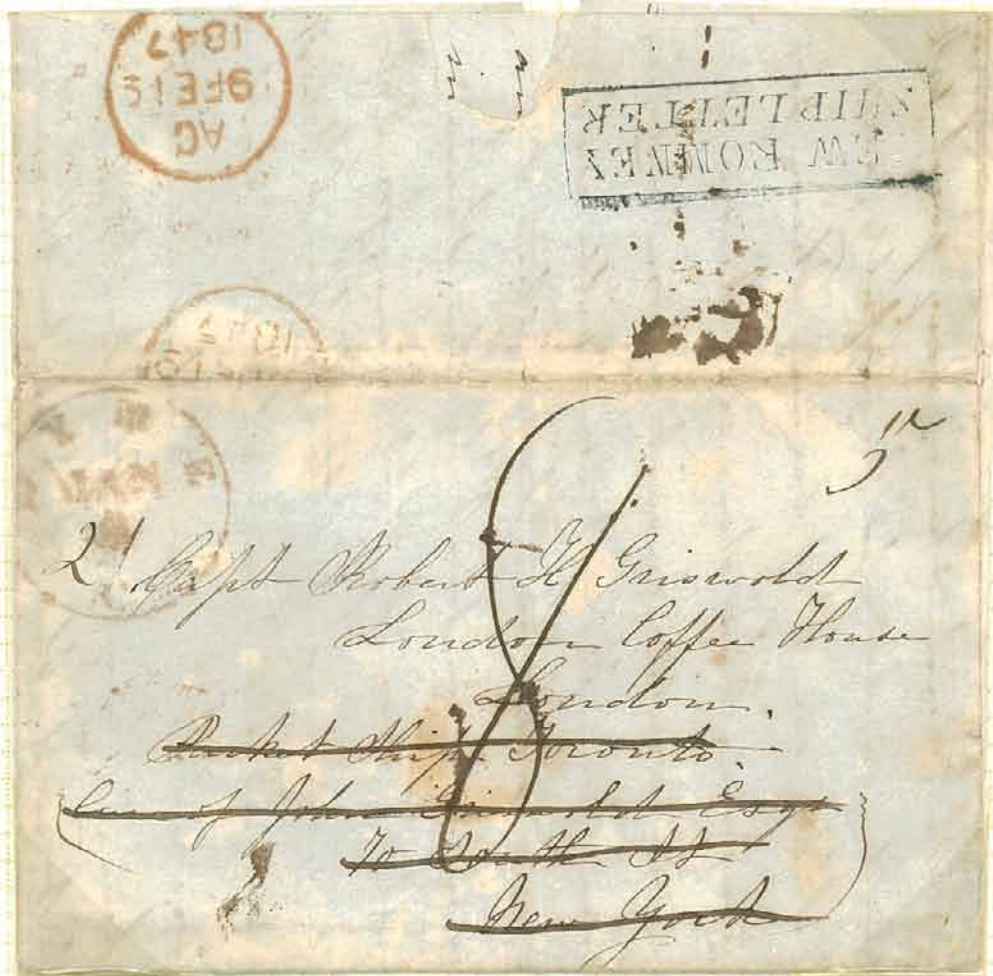 AG
1847
EW ROMNEY
SHIP LETTER
1847
8
2
Capt Robert H Griswold
London Coffee House
London.
Packet Ship Toronto.
Care of John Griswold Esqr
70 South St
New York